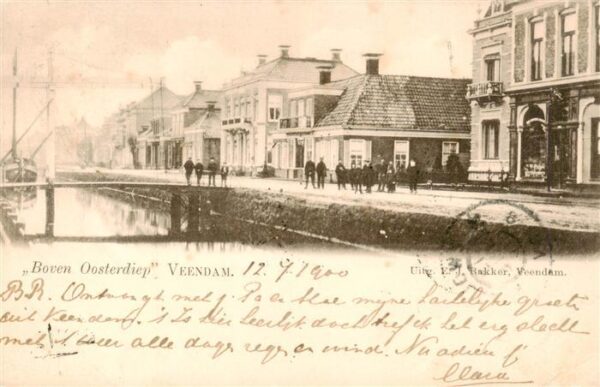 „Boven Oosterdiep” VEENDAM. 12.7.1900
Uitg. E. J. Bakker, Veendam.
BR. Ontvangt met Pa en Moe mijne hartelijke groet
uit Veendam. 't Is hier heerlijk doch tref ik het erg slecht
met 't weer alle dagen regen en wind. Nu adieu
Clara